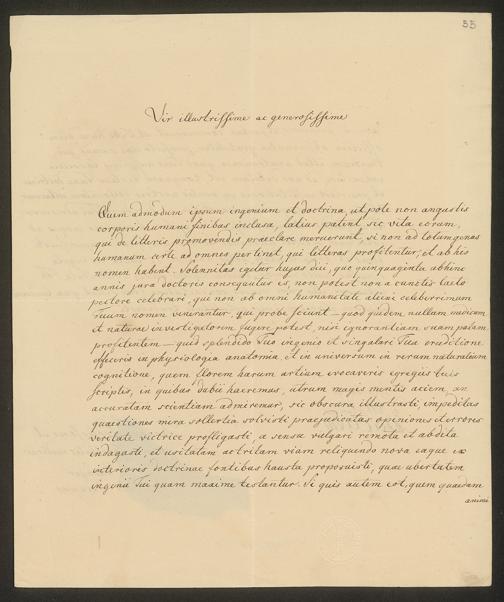 33
Vir illustrissime ac generosissime
Quem admodum ipsum ingenium et doctrina, ut pote non angustis
corporis humani finibus inclusa, latius patent, sic vita eorum,
qui de litteris promovendis praeclare meruerunt, si non ad totum genus
humanum certe ad omnes pertinet, qui litteras profitentur, et ab his
nomen habent. Solemnitas igitur hujus diei, quo quinquaginta abhinc
annis jura doctoris consequutus es, non potest non a cunctis laeto
pectore celebrari, qui non ab omni humanitate alieni celeberrimum
Tuum nomen venerantur. qui probe sciunt — quod quidem nullum medicum
et naturae investigatorem fugere potest, nisi ignorantiam suam palam
profitentem — quid splendido Tuo ingenio et singulari Tua eruditione
effeceris in physiologia anatomia et in universum in rerum naturalium
cognitione, quem florem harum artium evocaveris egregiis tuis
scriptis, in quibus dubii haeremus, utrum magis mentis aciem, an
accuratam scientiam admiremur, sic obscura illustrasti, impeditas
quaestiones mira sollertia solvisti, praejudicatas opiniones et errores
veritate victrice profligasti, a sensu vulgari remota et abdita
indagasti, et usitatam ac tritam viam relinquendo nova eaque ex
interioris doctrinae fontibus hausta proposuisti, quae ubertatem
ingenii Tui quam maxime testantur. Si quis autem est, quem quaedam
animi